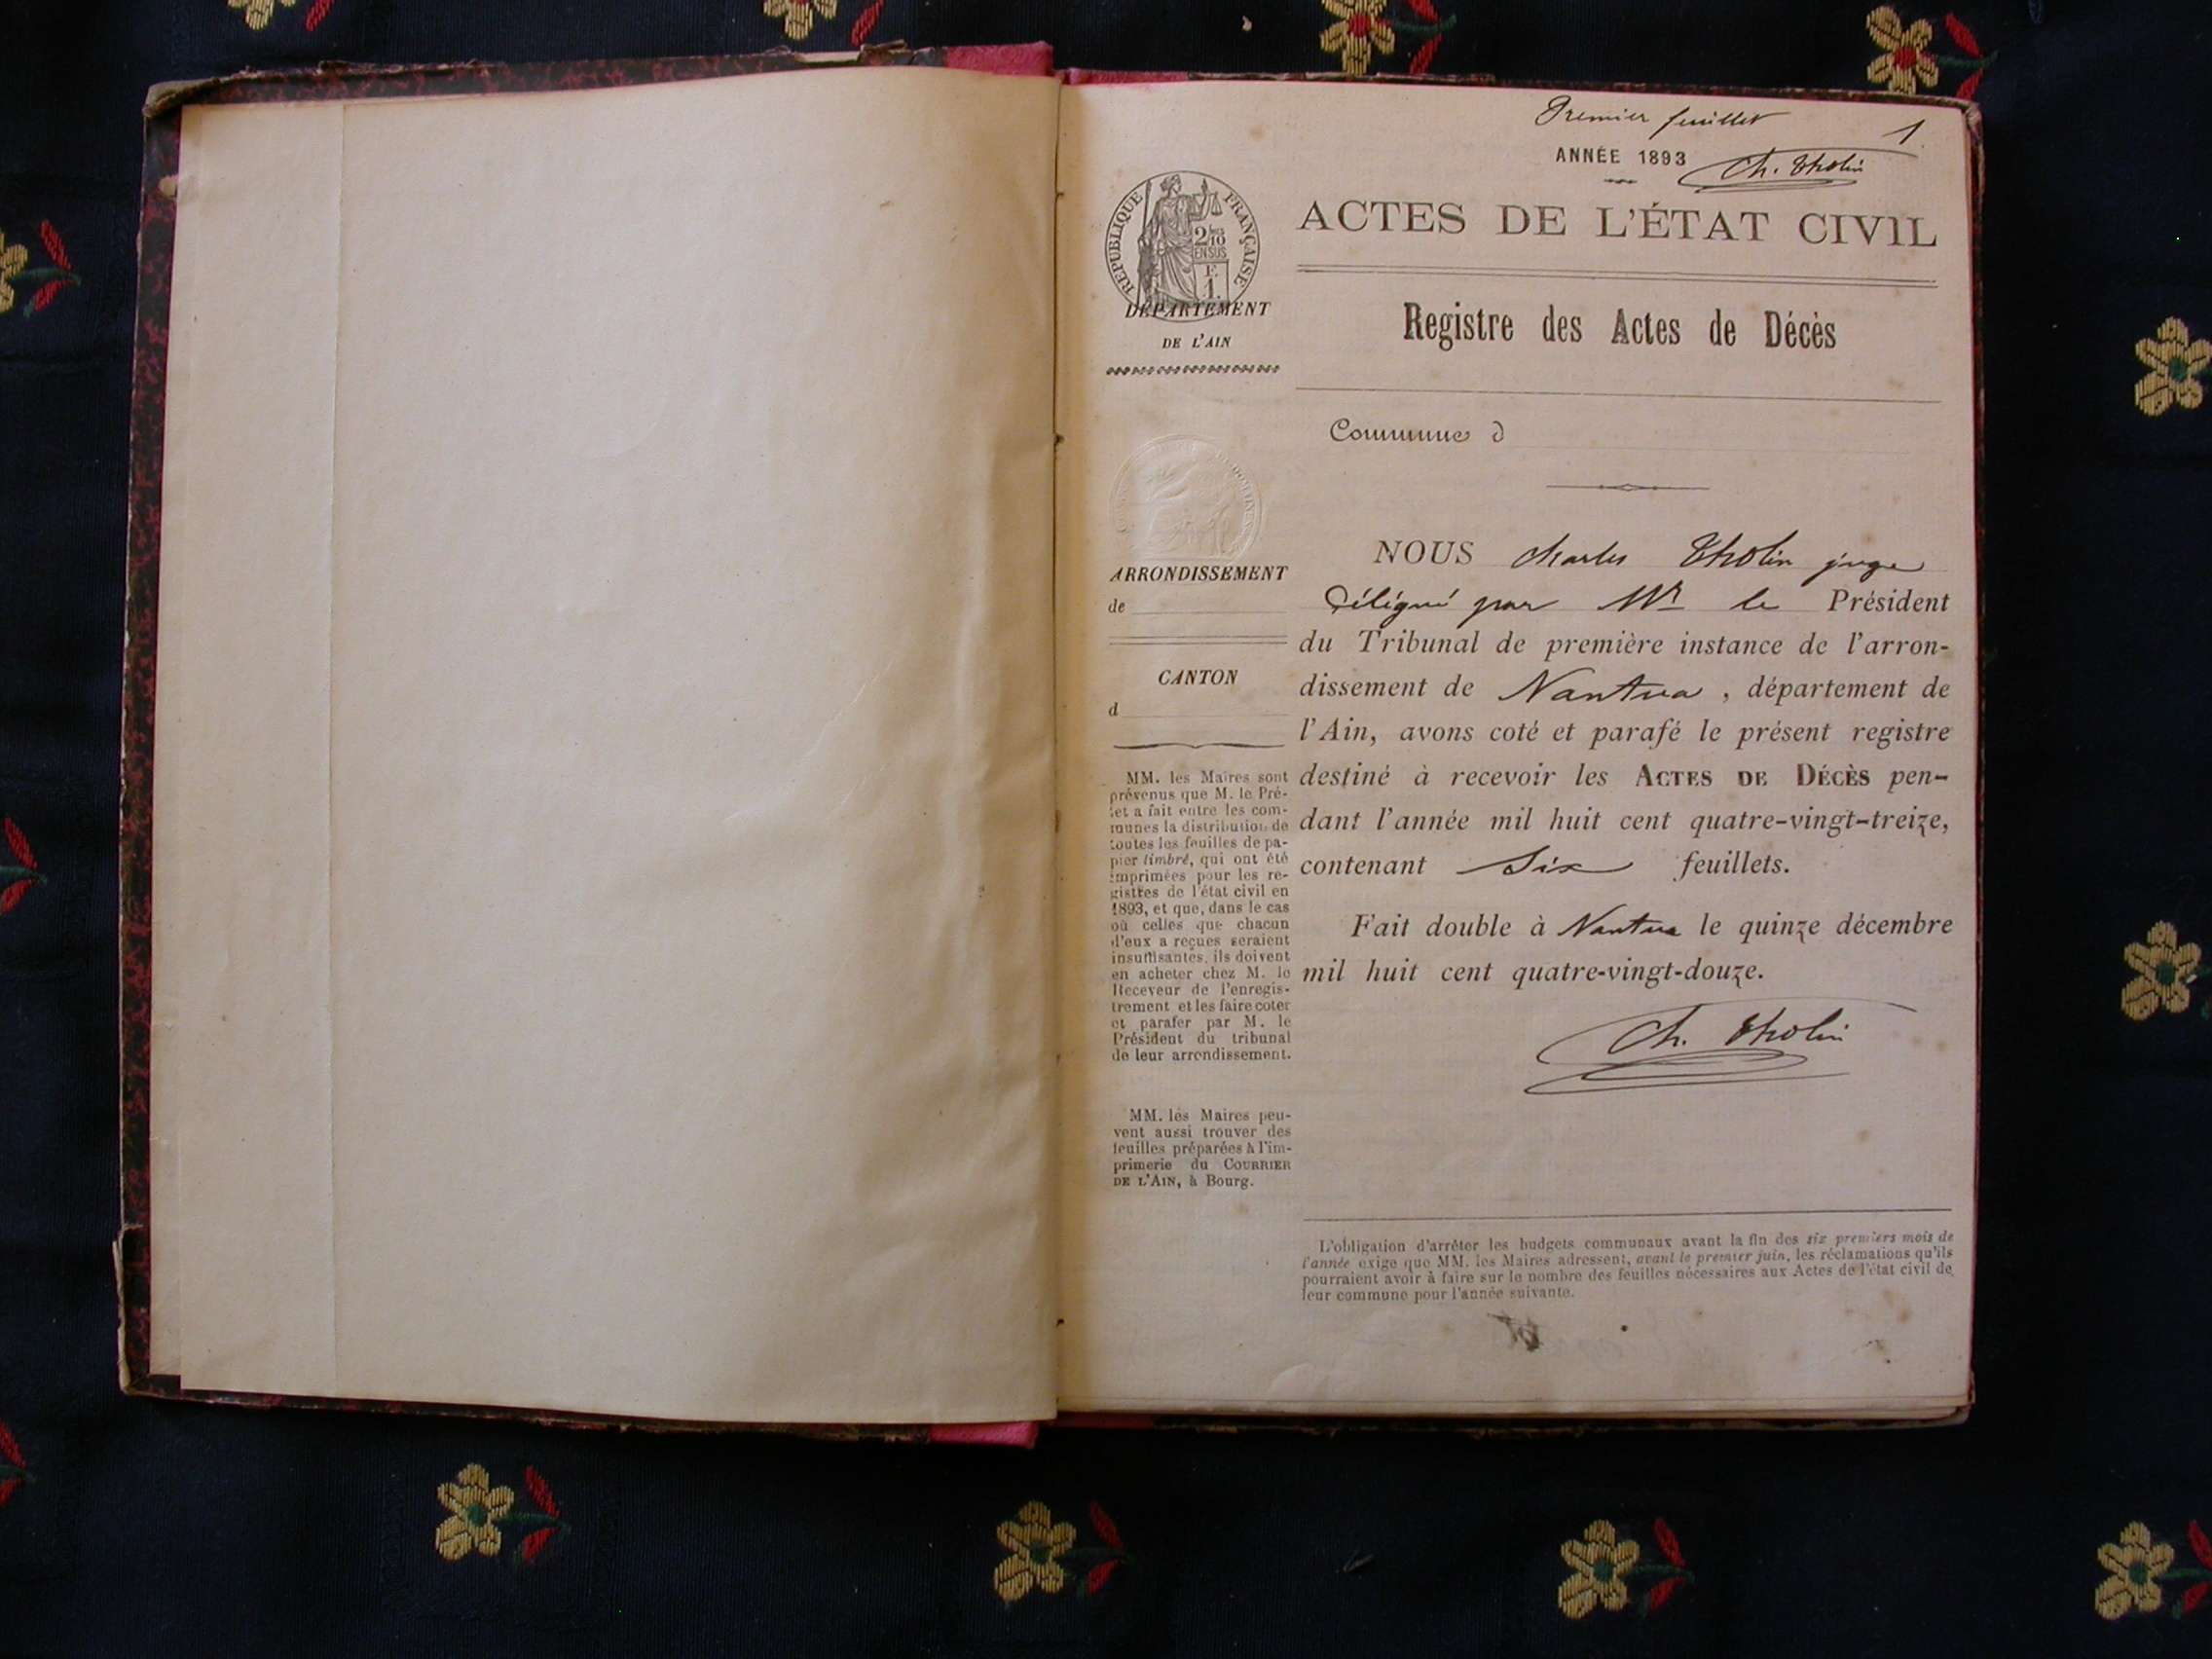 Premier feuillet
1
ANNÉE 1893
Ch. Tholin
RÉPUBLIQUE FRANÇAISE
2/10
EN SUS
F.
1.
DÉPARTEMENT
DE L'AIN
ACTES DE L'ÉTAT CIVIL
Registre des Actes de Décès
Commune d
ARRONDISSEMENT
de
CANTON
d
MM. les Maires sont
prévenus que M. le Pré-
fet a fait entre les com-
munes la distribution de
toutes les feuilles de pa-
pier timbré, qui ont été
imprimées pour les re-
gistres de l'état civil en
1893, et que, dans le cas
où celles que chacun
d'eux a reçues seraient
insuffisantes, ils doivent
en acheter chez M. le
Receveur de l'enregis-
trement et les faire coter
et parafer par M. le
Président du tribunal
de leur arrondissement.
MM. les Maires peu-
vent aussi trouver des
feuilles préparées à l'im-
primerie du COURRIER
DE L'AIN, à Bourg.
NOUS Charles Tholin juge
délégué par Mr le Président
du Tribunal de première instance de l'arron-
dissement de Nantua, département de
l'Ain, avons coté et parafé le présent registre
destiné à recevoir les ACTES DE DÉCÈS pen-
dant l'année mil huit cent quatre-vingt-treize,
contenant Six feuillets.
Fait double à Nantua le quinze décembre
mil huit cent quatre-vingt-douze.
Ch. Tholin
L'obligation d'arrêter les budgets communaux avant la fin des six premiers mois de
l'année exige que MM. les Maires adressent, avant le premier juin, les réclamations qu'ils
pourraient avoir à faire sur le nombre des feuilles nécessaires aux Actes de l'état civil de
leur commune pour l'année suivante.